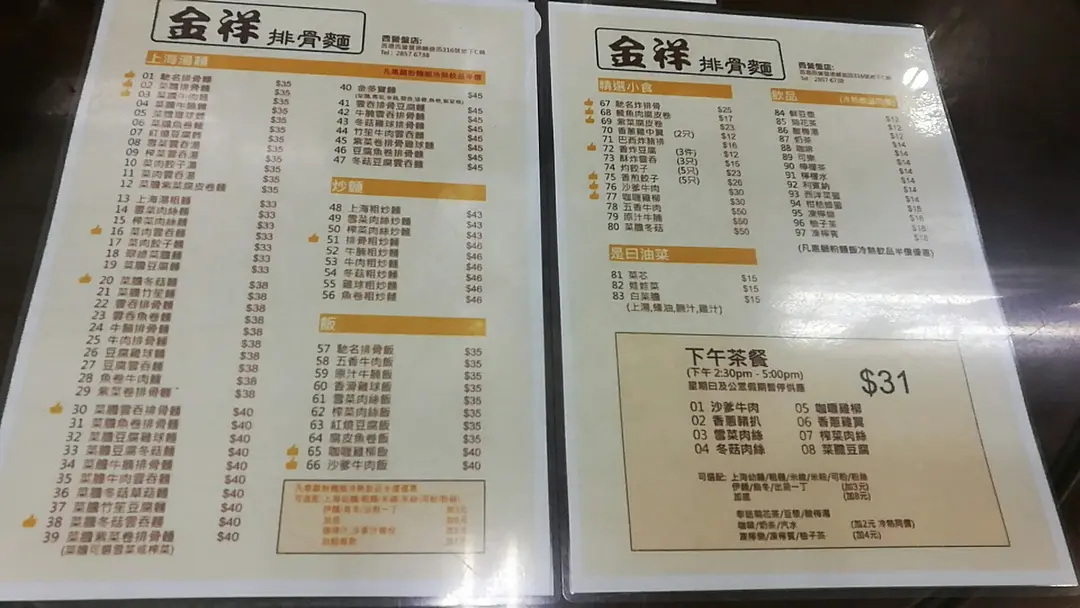 金祥 排骨麵
西營盤店:
Tel: 2857 6738
上海湯麵
凡惠顧粉麵飯冷熱飲品半價
01 馳名排骨麵 $35
02 菜膶排骨麵 $35
03 菜膶牛肉麵 $35
04 菜膶牛腩麵 $35
05 菜膶雞球麵 $35
06 菜膶魚卷麵 $35
07 紅燒豆腐麵 $35
08 雪菜雲吞湯 $35
09 榨菜雲吞湯 $35
10 菜肉餃子湯 $35
11 菜肉雲吞湯 $35
12 菜膶紫菜腐皮卷麵 $35
13 上海湯粗麵 $33
14 雪菜肉絲麵 $33
15 榨菜肉絲麵 $33
16 菜肉雲吞麵 $33
17 菜肉餃子麵 $33
18 翠綠菜膶麵 $33
19 菜膶豆腐麵 $33
20 菜膶冬菇麵 $38
21 菜膶竹笙麵 $38
22 雲吞排骨麵 $38
23 雲吞魚卷麵 $38
24 牛腩排骨麵 $38
25 牛肉排骨麵 $38
26 豆腐雞球麵 $38
27 豆腐雲吞麵 $38
28 魚卷牛肉麵 $38
29 紫菜卷排骨麵 $38
30 菜膶雲吞排骨麵 $40
31 菜膶魚卷排骨麵 $40
32 菜膶豆腐雞球麵 $40
33 菜膶豆腐冬菇麵 $40
34 菜膶牛腩排骨麵 $40
35 菜膶牛肉雲吞麵 $40
36 菜膶冬菇草菇麵 $40
37 菜膶竹笙豆腐麵 $40
38 菜膶冬菇雲吞麵 $40
39 菜膶紫菜卷排骨麵 $40
(菜膶可選雪菜或榨菜)
40 金多寶麵 $45
41 雲吞排骨豆腐麵 $45
42 牛腩雲吞排骨麵 $45
43 冬菇雞球排骨麵 $45
44 竹笙牛肉雲吞麵 $45
45 紫菜卷排骨雞球麵 $45
46 豆腐魚卷排骨麵 $45
47 冬菇豆腐雲吞麵 $45
炒麵
48 上海粗炒麵 $43
49 雪菜肉絲炒麵 $43
50 榨菜肉絲炒麵 $43
51 排骨粗炒麵 $46
52 牛腩粗炒麵 $46
53 牛肉粗炒麵 $46
54 冬菇粗炒麵 $46
55 雞球粗炒麵 $46
56 魚卷粗炒麵 $46
飯
57 馳名排骨飯 $35
58 五香牛肉飯 $35
59 原汁牛腩飯 $35
60 香滑雞球飯 $35
61 雪菜肉絲飯 $35
62 榨菜肉絲飯 $35
63 紅燒豆腐飯 $35
64 腐皮魚卷飯 $35
65 咖喱雞柳飯 $40
66 沙爹牛肉飯 $40
金祥 排骨麵
西營盤店:
Tel: 2857 6738
精選小食
67 馳名炸排骨 $25
68 鯪魚肉腐皮卷 $17
69 紫菜腐皮卷 $23
70 香蔥雞中翼 (2只) $12
71 巴西炸豬排 $16
72 香炸豆腐 (3件) $12
73 酥炸雲吞 (3只) $15
74 灼餃子 (5只) $23
75 香煎餃子 (5只) $26
76 沙爹牛肉 $30
77 咖喱雞柳 $30
78 五香牛肉 $50
79 原汁牛腩 $50
80 菜膶冬菇 $50
是日油菜
81 菜芯 $15
82 娃娃菜 $15
83 白菜膶 $15
(上湯,蠔油,腩汁,雞汁)
飲品
84 鮮豆漿 $12
85 菊花茶 $12
86 酸梅湯 $12
87 奶茶 $14
88 咖啡 $14
89 可樂
90 檸檬茶 $14
91 檸檬水 $14
92 利賓納 $14
93 西洋菜蜜 $14
94 柑桔蜂蜜
95 凍檸樂
96 柚子茶
97 凍檸賓 $18
(凡惠顧粉麵飯冷熱飲品半價優惠)
下午茶餐
(下午 2:30pm - 5:00pm)
星期日及公眾假期暫停供應
$31
01 沙爹牛肉 05 咖喱雞柳
02 香蔥豬扒 06 香蔥雞翼
03 雪菜肉絲 07 榨菜肉絲
04 冬菇肉絲 08 菜膶豆腐
可選配: 上海幼麵/粗麵/米線/米粉/河粉/粉絲
伊麵/烏冬/出前一丁 (加3元)
加底 (加8元)
奉送菊花茶/豆漿/酸梅湯
咖啡/奶茶/汽水 (加2元 冷熱同價)
凍檸樂/凍檸賓/柚子茶 (加4元)